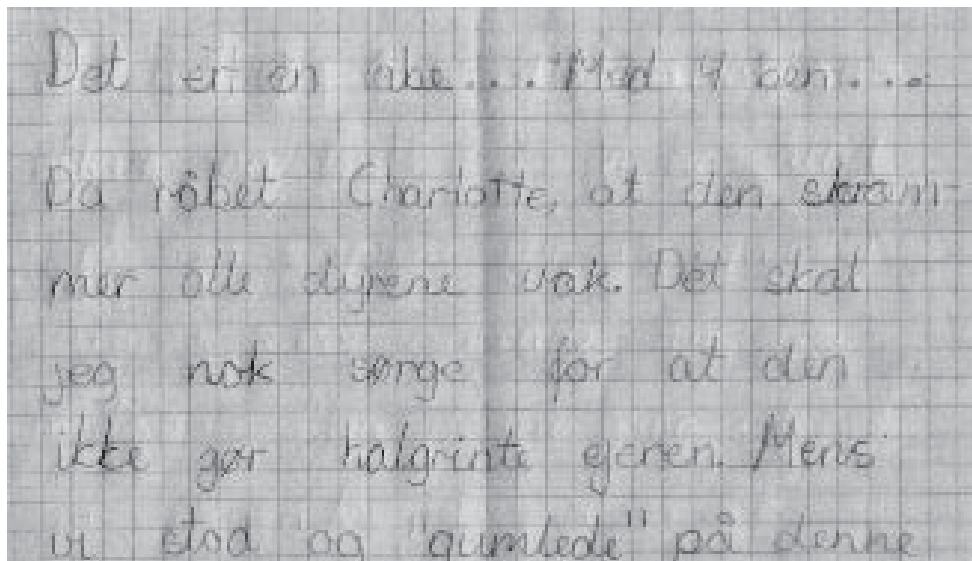 Det er en abe... Med 4 ben...
Da råbet Charlotte, at den skræm-
mer alle dyrene væk. Det skal
jeg nok sørge for at den
ikke gør halgrinte ejeren. Mens
vi stod og "gumlede" på denne